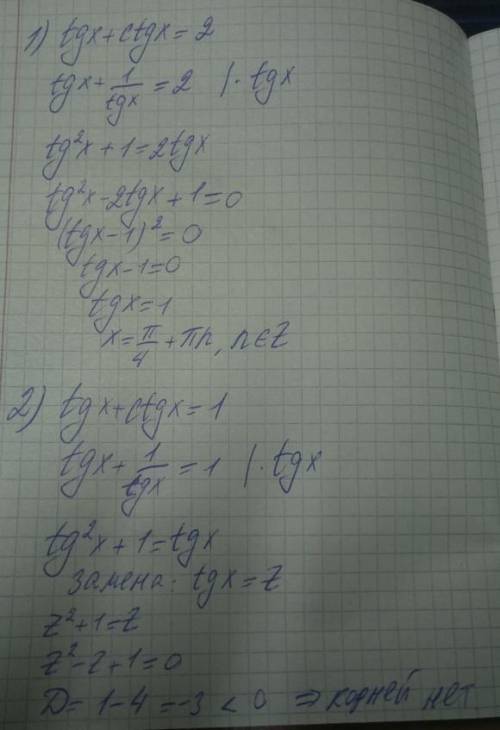 1) tgx+ctgx=2
tgx+1/tgx=2 |·tgx
tg²x+1=2tgx
tg²x-2tgx+1=0
(tgx-1)²=0
tgx-1=0
tgx=1
x=π/4+πn, n∈Z
2) tgx+ctgx=1
tgx+1/tgx=1 |·tgx
tg²x+1=tgx
замена: tgx=z
z²+1=z
z²-z+1=0
D=1-4=-3<0 ⇒ корней нет